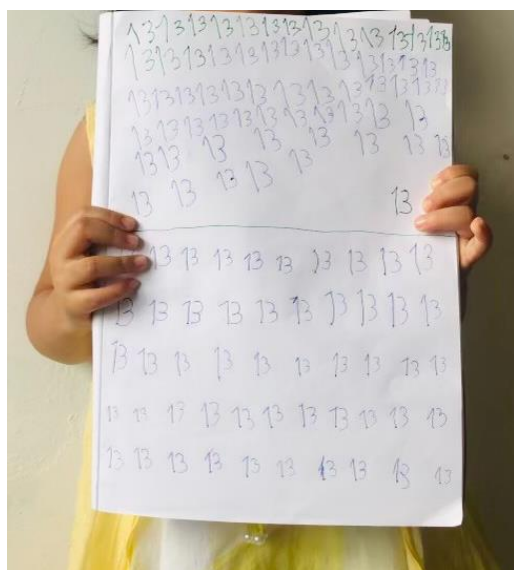 13 13 13 13 13 13 13 13 13 13 13 13 13 13
13 13 13 13 13 13 13 13 13 13 13 13 13 13
13 13 13 13 13 13 13 13 13 13 13 13 13
13 13 13 13 13 13 13 13 13 13 13
13 13 13 13 13 13 13 13
13 13 13 13 13 13
13 13 13 13 13 13 13 13 13
13 13 13 13 13 13 13 13 13 13
13 13 13 13 13 13 13 13 13 13
13 13 13 13 13 13 13 13 13 13 13
13 13 13 13 13 13 13 13 13 13